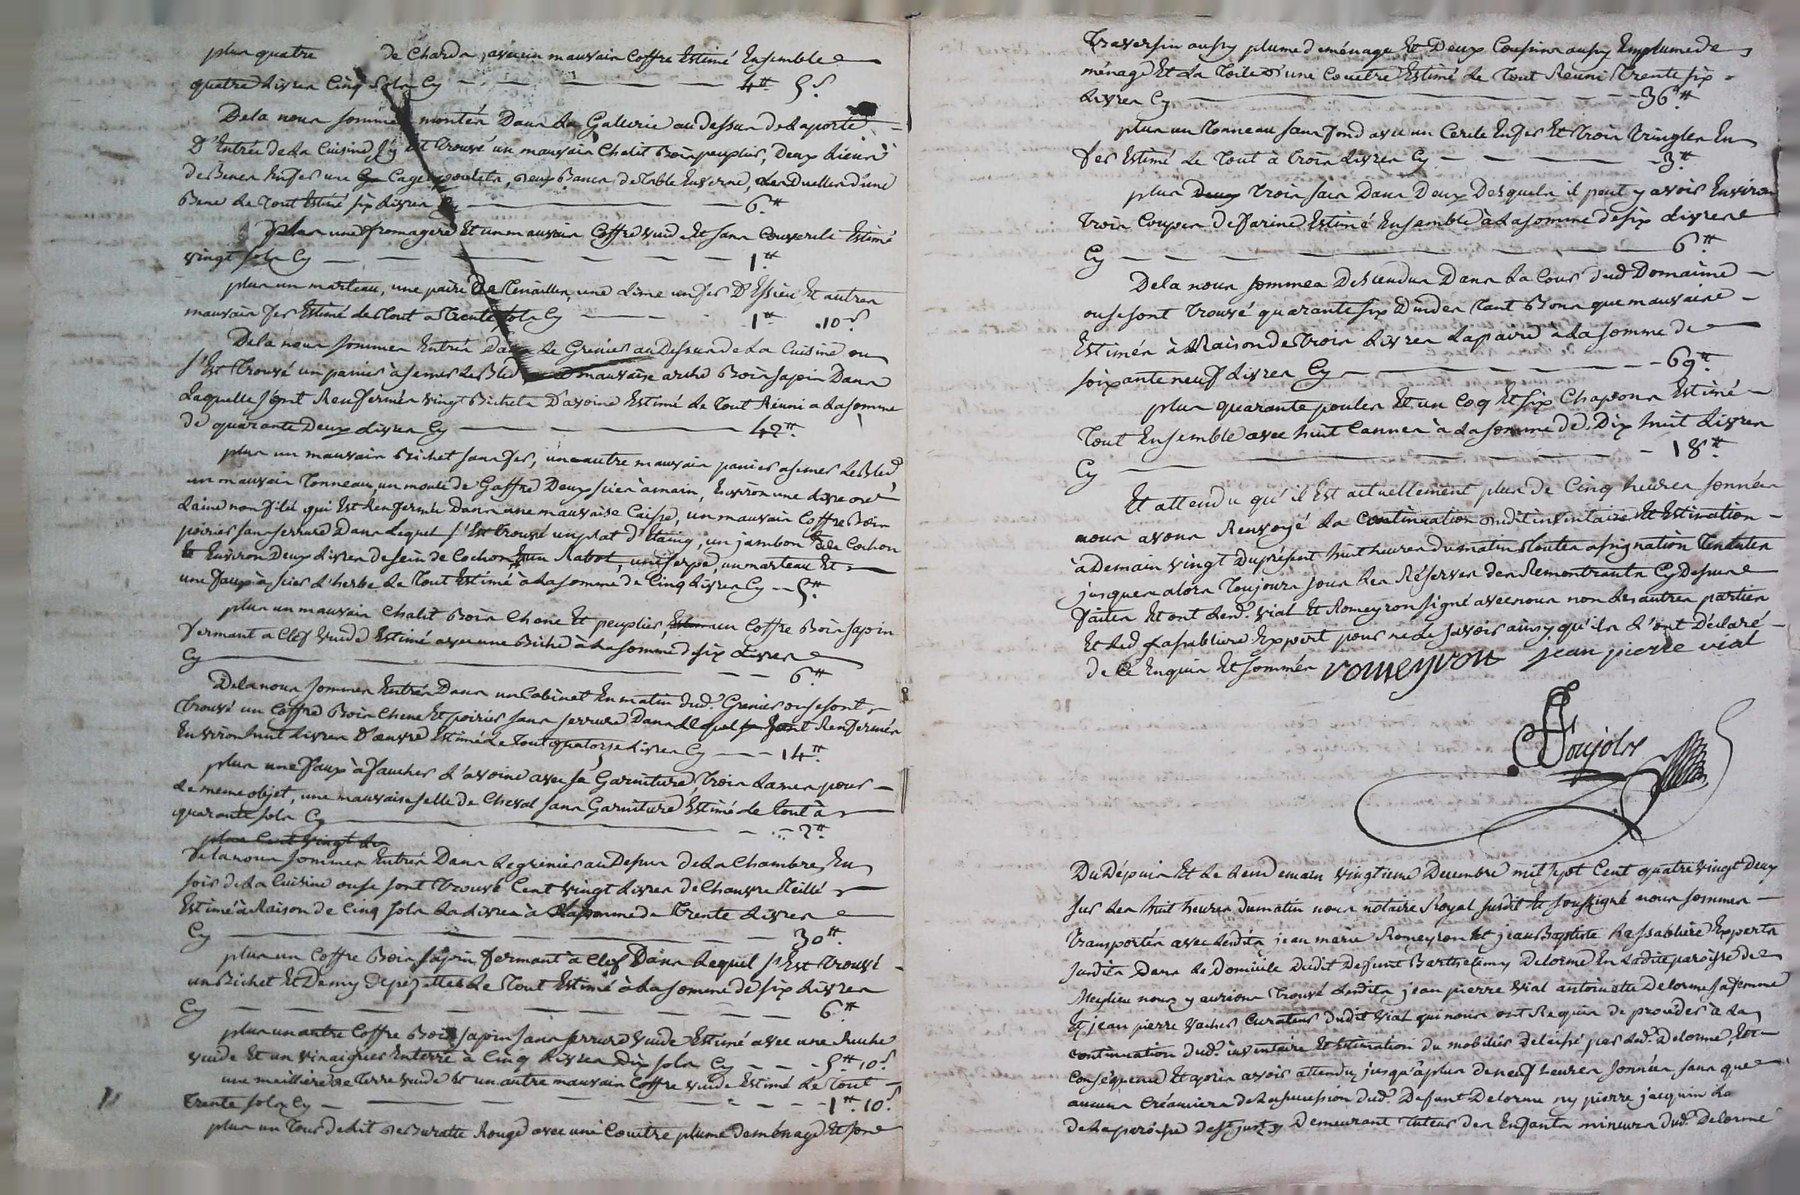 plus quatre de Charda, avec un mauvais Coffre Estimé Ensemble
quatre Livres Cinq Sols Cy 4tt 5s
De la nous sommes montés Dans la Gallerie au dessus de la porte
D'Entrée de la Cuisine s'y est trouvé un mauvais Chalit Bois peuplier, Deux Liens
de Benes En fer une Cage a poulets, deux Bancs de Table En verne, Les Duelles d'une
Bene Le Tout Estimé six Livres Cy 6tt
plus une fromagere Et un mauvais Coffre vuide Et sans Couvercle Estimé
vingt sols Cy 1tt
plus un marteau, une paire de Tenailles, une Lime un fer D'Essieu Et autres
mauvais fer Estimé Le Tout a Trente sols Cy 1tt 10s
De la nous sommes Entrés Dans Le Grenier au Dessus de La Cuisine ou
s'Est Trouvé un panier a semer Le Bled mauvaise arche Bois sapin Dans
Laquelle sont Renfermés vingt Bichets D'avoine Estimé Le Tout Réuni a La somme
de quarante Deux Livres Cy 42tt
plus un mauvais Bichet sans fer, un autre mauvais panier a semer Le Bled
un mauvais Tonneau, un moule de Gaffre Deux scies à main, Environ une Livre de
Laine non filé qui Est Renfermée Dans une mauvaise Caisse, un mauvais Coffre Bois
poirier sans serrure Dans Lequel s'Est trouvé un plat d'Etaing, un jambon de Cochon
Environ Deux Livres de sein de Cochon, un Rabot, une serpe, un marteau Et
une faux à scier L'herbe Le Tout Estimé à La somme de Cinq Livres Cy 5tt
plus un mauvais Chalit Bois Chene Et peuplier, un Coffre Bois sapin
fermant a Clef vuide Estimé avec une Biche à La somme de six Livres
Cy 6tt
De la nous sommes Entrés Dans un Cabinet En matin dud. Grenier ou se sont
Trouvé un Coffre Bois Chene Et poirier sans serrure Dans Lequel sont Renfermés
Environ huit Livres D'oeuvre Estimé Le Tout quatorze Livres Cy 14tt
plus une faux à faucher L'avoine avec sa Garniture, Trois Lames pour
Le meme objet, une mauvaise selle de Cheval sans Garniture Estimé Le Tout à
quarante sols Cy 2tt
plus Cent vingt Li
De la nous sommes Entrés Dans Le grenier au Dessus de La Chambre, En
soir de La Cuisine ou se sont Trouvé Cent vingt Livres de Chanvre Teillé
Estimé à Raison de Cinq sols La Livre à La somme de Trente Livres
Cy 30tt
plus un Coffre Bois sapin fermant à Clef Dans Lequel s'Est Trouvé
un Bichet Et Demy de pezettes Le Tout Estimé à La somme de six Livres
Cy 6tt
plus un autre Coffre Bois sapin sans serrure vuide Estimé avec une Ruche
vuide Et un vinaigrier En terre à Cinq Livres Dix sols Cy 5tt 10s
une meilliere de Terre vuide Et un autre mauvais Coffre vuide Estimé Le Tout
Trente sols Cy 1tt 10s
plus un Tour de Lit de Buratte Rouge avec une Couitre plume de ménage Et son
Traversin aussy plume de ménage Et Deux Coussins aussy En plume de
ménage Et La Toile d'une Couitre Estimé Le Tout Reuni Trente six
Livres Cy 36tt
plus un Tonneau sans fond avec un Cercle En fer Et Trois Tringles En
fer Estimé Le Tout à Trois Livres Cy 3tt
plus Deux Trois sacs Dans Deux Desquels il peut y avoir Environ
Trois Coupes de farine Estimé Ensemble à La somme de six Livres
Cy 6tt
De la nous sommes Descendus Dans La Cour dud. Domaine
ou se sont Trouvé quarante six Dindes Tant Bons que mauvaise
Estimés à Raison de Trois Livres La paire à La somme de
soixante neuf Livres Cy 69tt
plus quarante poules Et un Coq Et six Chapons Estimé
Tout Ensemble avec huit Cannes à La somme de Dix huit Livres
Cy 18tt
Et attendu qu'il Est actuellement plus de Cinq heures sonnées
nous avons Renvoyé La Continuation ondit inventaire Et Estimation
à Demain vingt Du présent huit heures du matin Toutes assignation Tenantes
jusques alors Toujours sous Les Réserves des Remontrants Cy Dessus
faites Et ont Lesd. vial Et Romeyron signé avec nous non Les autres parties
Et Led. Lassabliere Expert pour ne Le savoir ainsy qu'ils L'ont Déclaré
de Ce Enquis Et sommés romeyron jean pierre vial
Soujols
Du Dépuis Et Le Lendemain vingtieme Decembre mil sept Cent quatre vingt Deux
sur Les huit heures du matin nous notaire Royal susdit Et soussigné nous sommes
Transportés avec Lesdits jean marie Romeyron Et jean Baptiste Lassabliere Experts
susdits Dans Le Domicile Dudit Defunt Barthelemy Delorme En Ladite paroisse de
Meylieu nous y aurions Trouvé Lesdits jean pierre vial antoinette Delorme sa femme
Et jean pierre vacher Curateur dudit vial qui nous ont Requis de proceder à La
continuation dud. inventaire Et Estimation du mobilier Delaissé par Led. Delorme, En
Conséquence Et après avoir attendu jusqu'à plus de neuf heures sonnées sans que
aucuns Créanciers de La succession dud. Defunt Delorme ny pierre jacquin La
de La paroisse de st just y Demeurant Tuteur des Enfants mineurs dud. Delorme